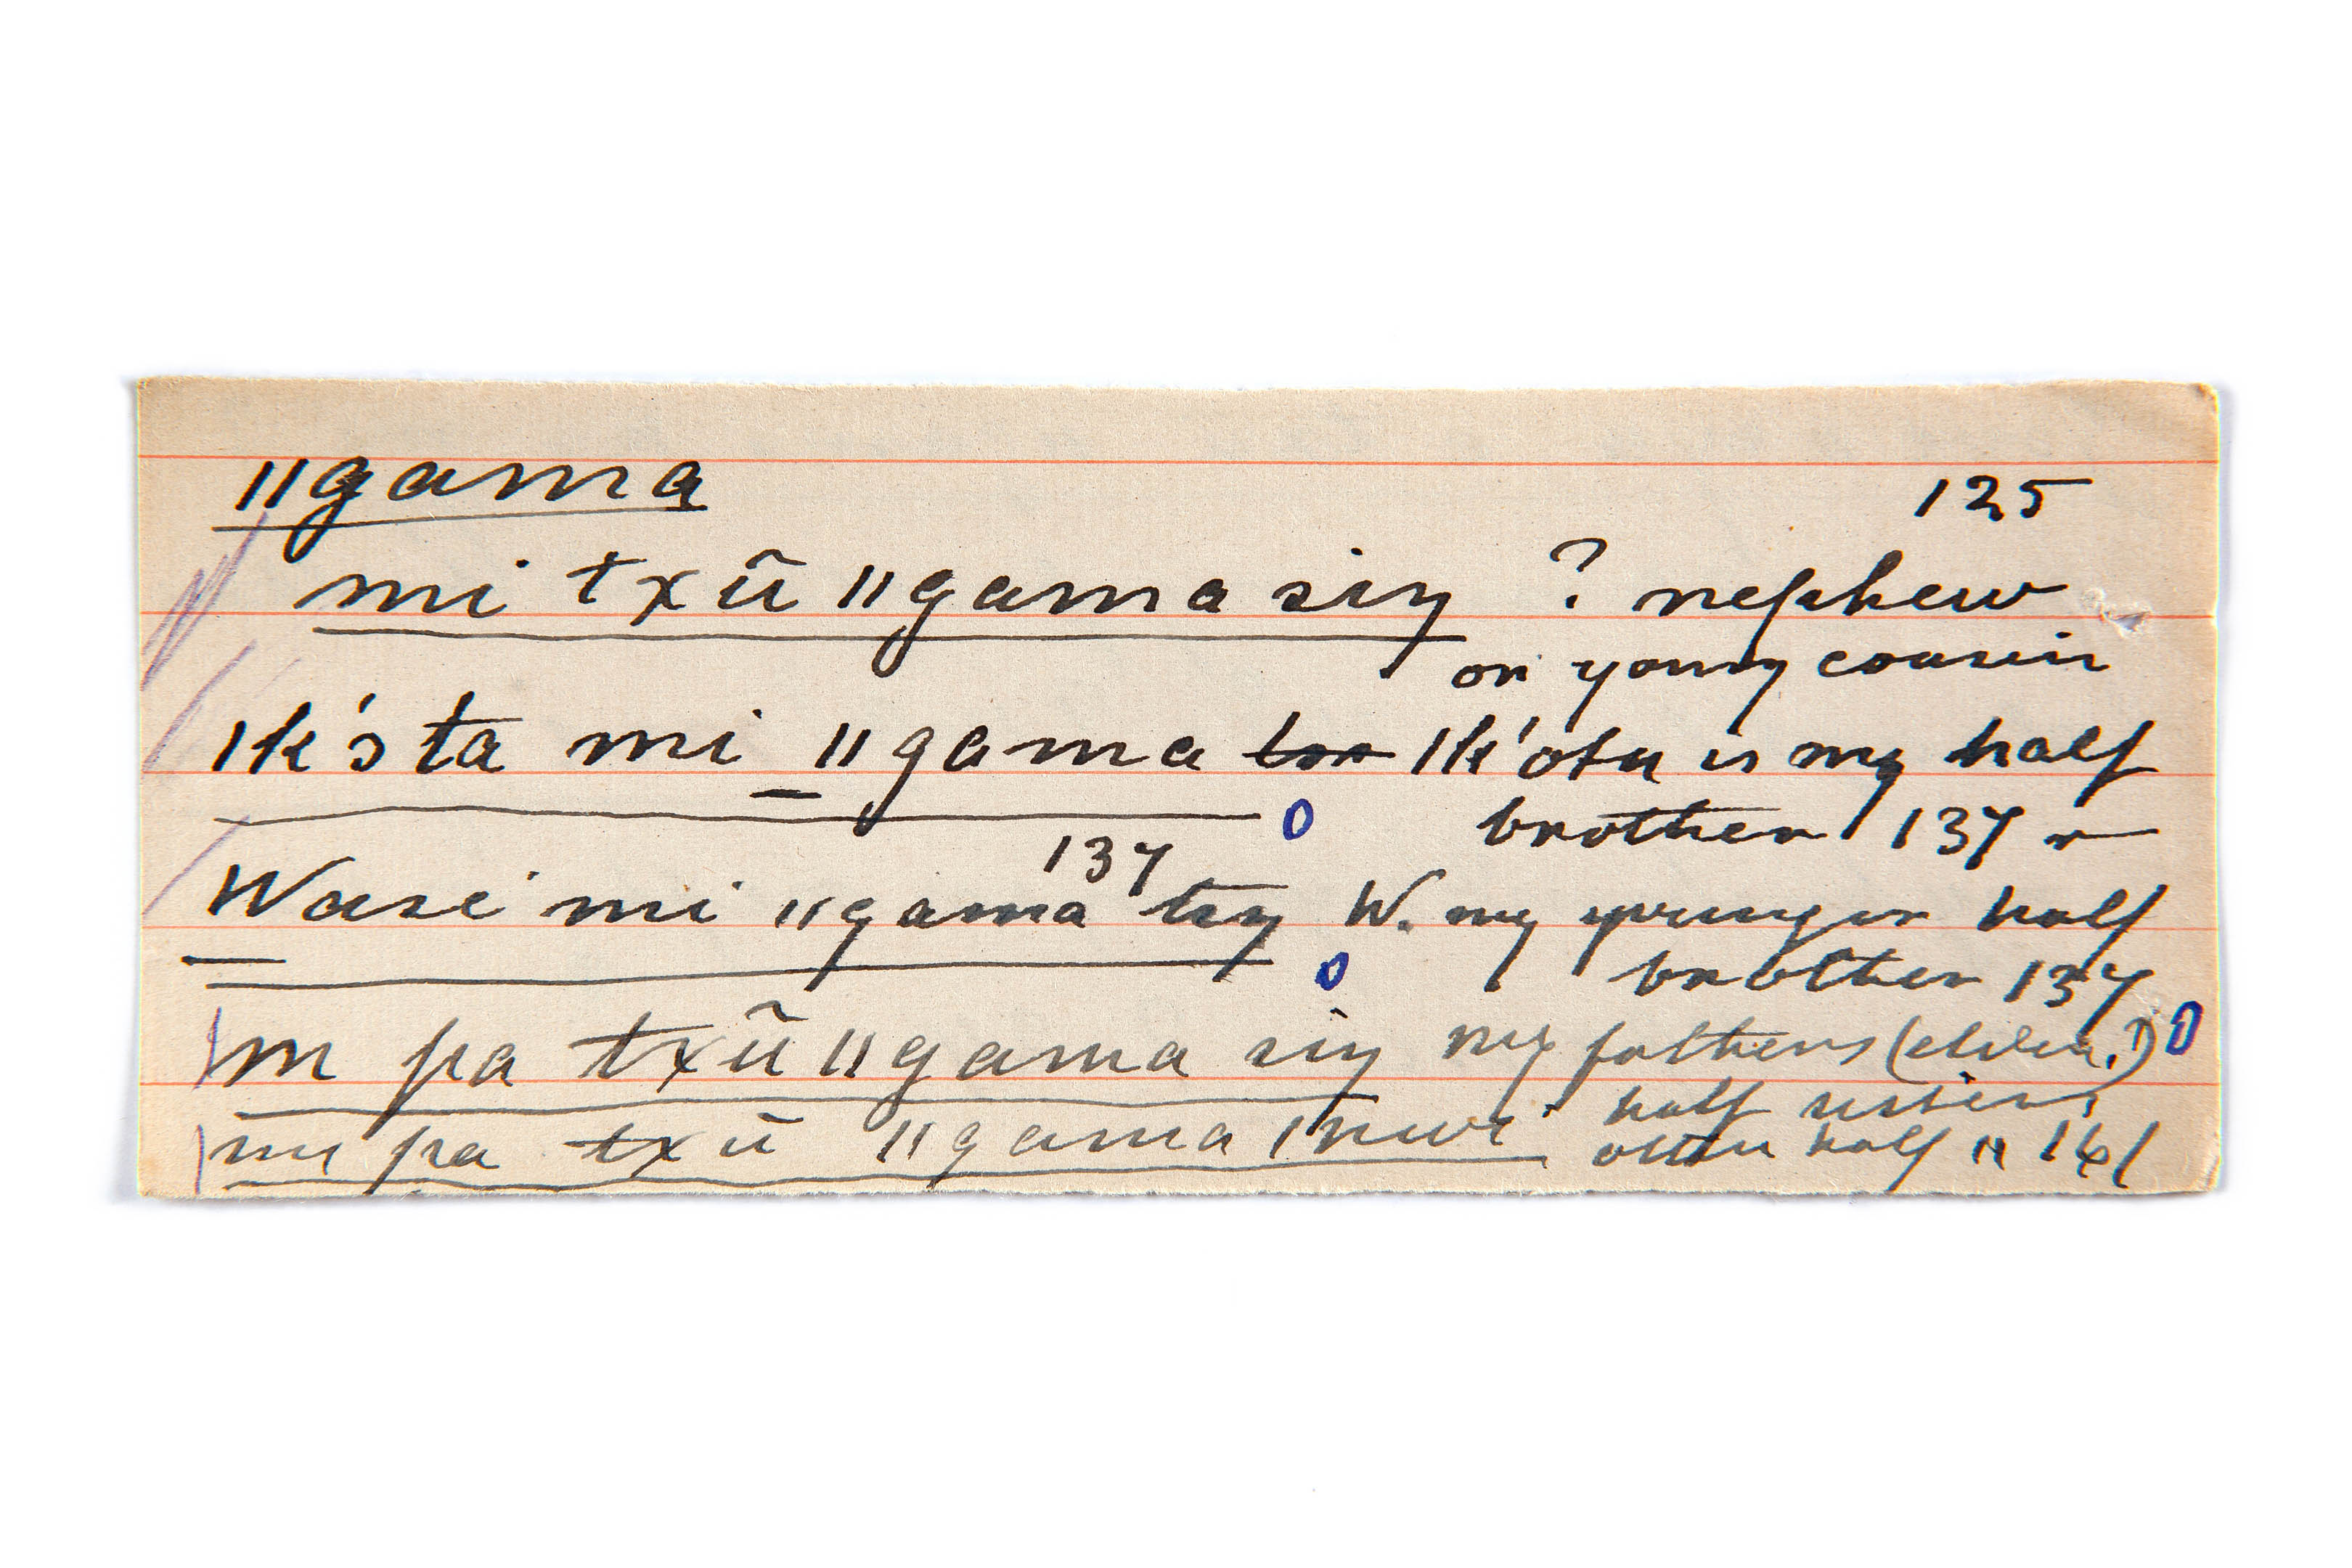 ǁgama 125
mi txũ ǁgama siŋ ? nephew
or young cousin
ǀk'ɔta mi ǁgama ǀk'ɔta is my half
brother 137 r
137
Wasi mi ǁgama tsŋ W. my younger half
brother 137
m pa txũ ǁgama siŋ my fathers (elder?)
half sister
mi pa txũ ǁgama half " 161